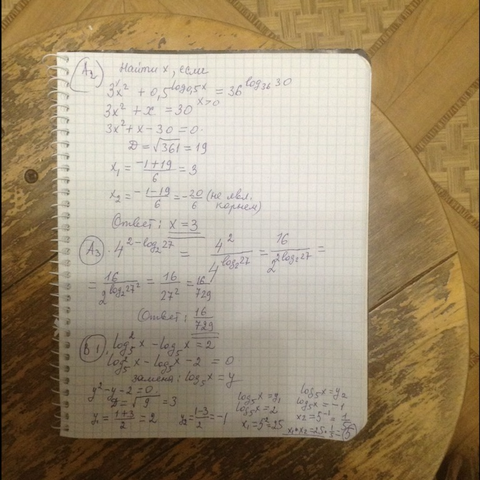 A2 Найти x, если
3x² + 0,5^(log₀,₅x) = 36^(log₃₆30)
3x² + x = 30 x>0
3x² + x - 30 = 0
D = √361 = 19
x₁ = (-1+19)/6 = 3
x₂ = (-1-19)/6 = -20/6 (не явл. корнем)
Ответ: x = 3
A3. 4^(2-log₂27) = 4²/4^(log₂27) = 16/2^(2log₂27) =
= 16/2^(log₂27²) = 16/27² = 16/729
Ответ: 16/729
B1. log₅²x - log₅x = 2
log₅²x - log₅x - 2 = 0
замена: log₅x = y
y² - y - 2 = 0
D = √9 = 3
y₁ = (1+3)/2 = 2 y₂ = (1-3)/2 = -1
log₅x = y₁
log₅x = 2
x₁ = 5² = 25
log₅x = y₂
log₅x = -1
x₂ = 5⁻¹ = 1/5
x₁·x₂ = 25·1/5 = 5